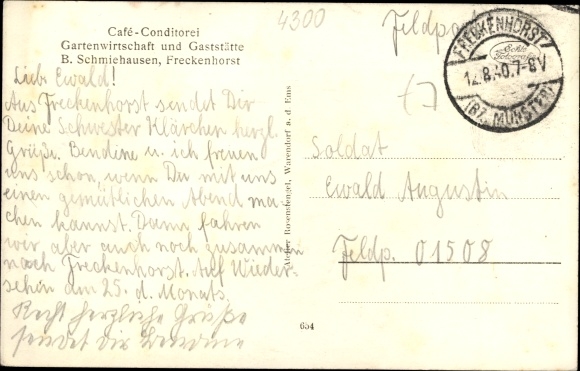 4300
Feldpost
Café-Conditorei
Gartenwirtschaft und Gaststätte
B. Schmiehausen, Freckenhorst
FRECKENHORST
12.8.40.7-8V
(BZ. MÜNSTER)
Echte Fotografie
Lieb. Ewald!
Aus Freckenhorst sendet Dir
Deine Schwester Klärchen herzl.
Grüße. Bendine u. ich freuen
uns schon, wenn Du mit uns
einen gemütlichen Abend ma-
chen kannst. Dann fahren
wir aber auch noch zusammen
nach Freckenhorst. Auf Wieder-
sehen am 25. d. Monats.
Recht herzliche Grüße
sendet dir Bendine
Atelier Rosenstengel, Warendorf a. d. Ems
Soldat
Ewald Augustin
Feldp. 01508
654